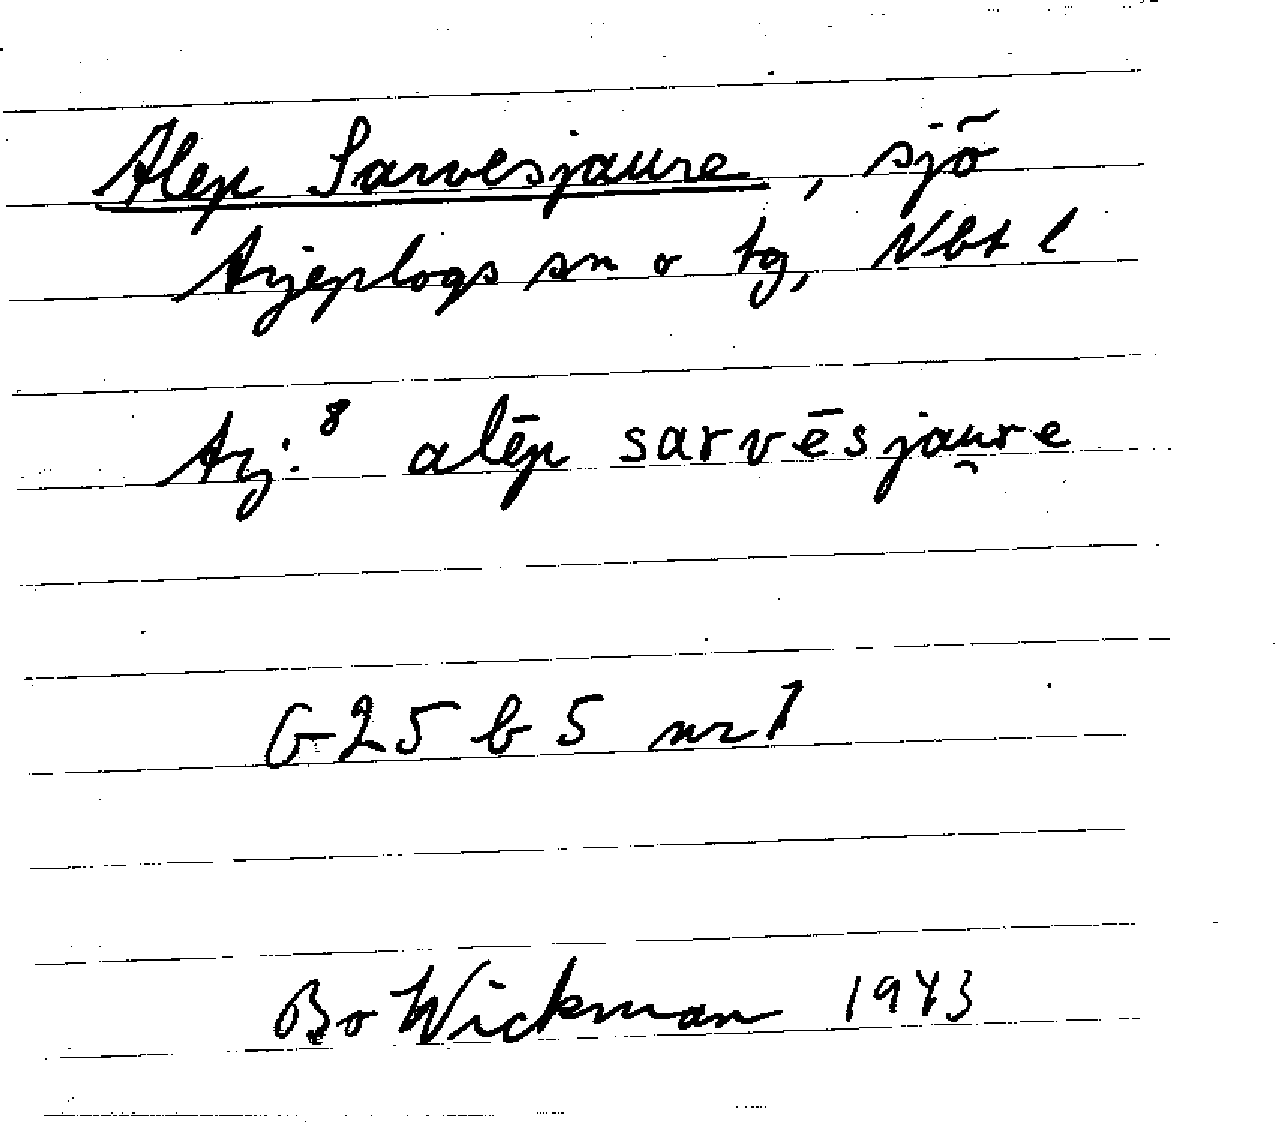 Alep Sarvesjaure, sjö
Arjeplogs sn o tg, Nbt l
Arj.⁸ alēp sarvēsjau̯re
G 25 b 5 nr 1
Bo Wickman 1943